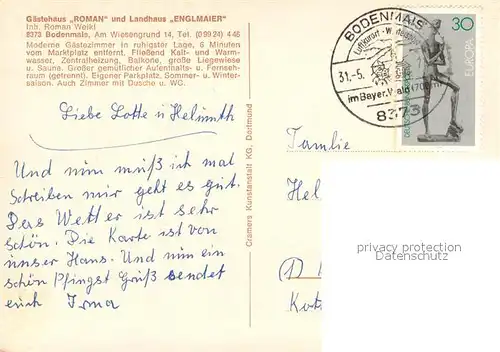 Gästehaus „ROMAN“ und Landhaus „ENGLMAIER“
Inh. Roman Weikl
8373 Bodenmais, Am Wiesengrund 14, Tel. (0 99 24) 4 46
Moderne Gästezimmer in ruhigster Lage, 6 Minuten
vom Marktplatz entfernt. Fließend Kalt- und Warm-
wasser, Zentralheizung, Balkone, große Liegewiese
u. Sauna. Großer gemütlicher Aufenthalts- u. Fernseh-
raum (getrennt). Eigener Parkplatz. Sommer- u. Winter-
saison. Auch Zimmer mit Dusche u. WC.
Liebe Lotte u Helmuth
Und nun muß ich mal
Schreiben mir geht es gut.
Das Wetter ist sehr
schön. Die Karte ist von
unser Hans. Und nun ein
schön Pfingst Gruß sendet
euch Irma
Cramers Kunstanstalt KG, Dortmund
BODENMAIS
Luftkurort
31.-5.
im Bayer. Wald (700m)
8373
30
EUROPA
Familie
Hel
privacy protection
Datenschutz